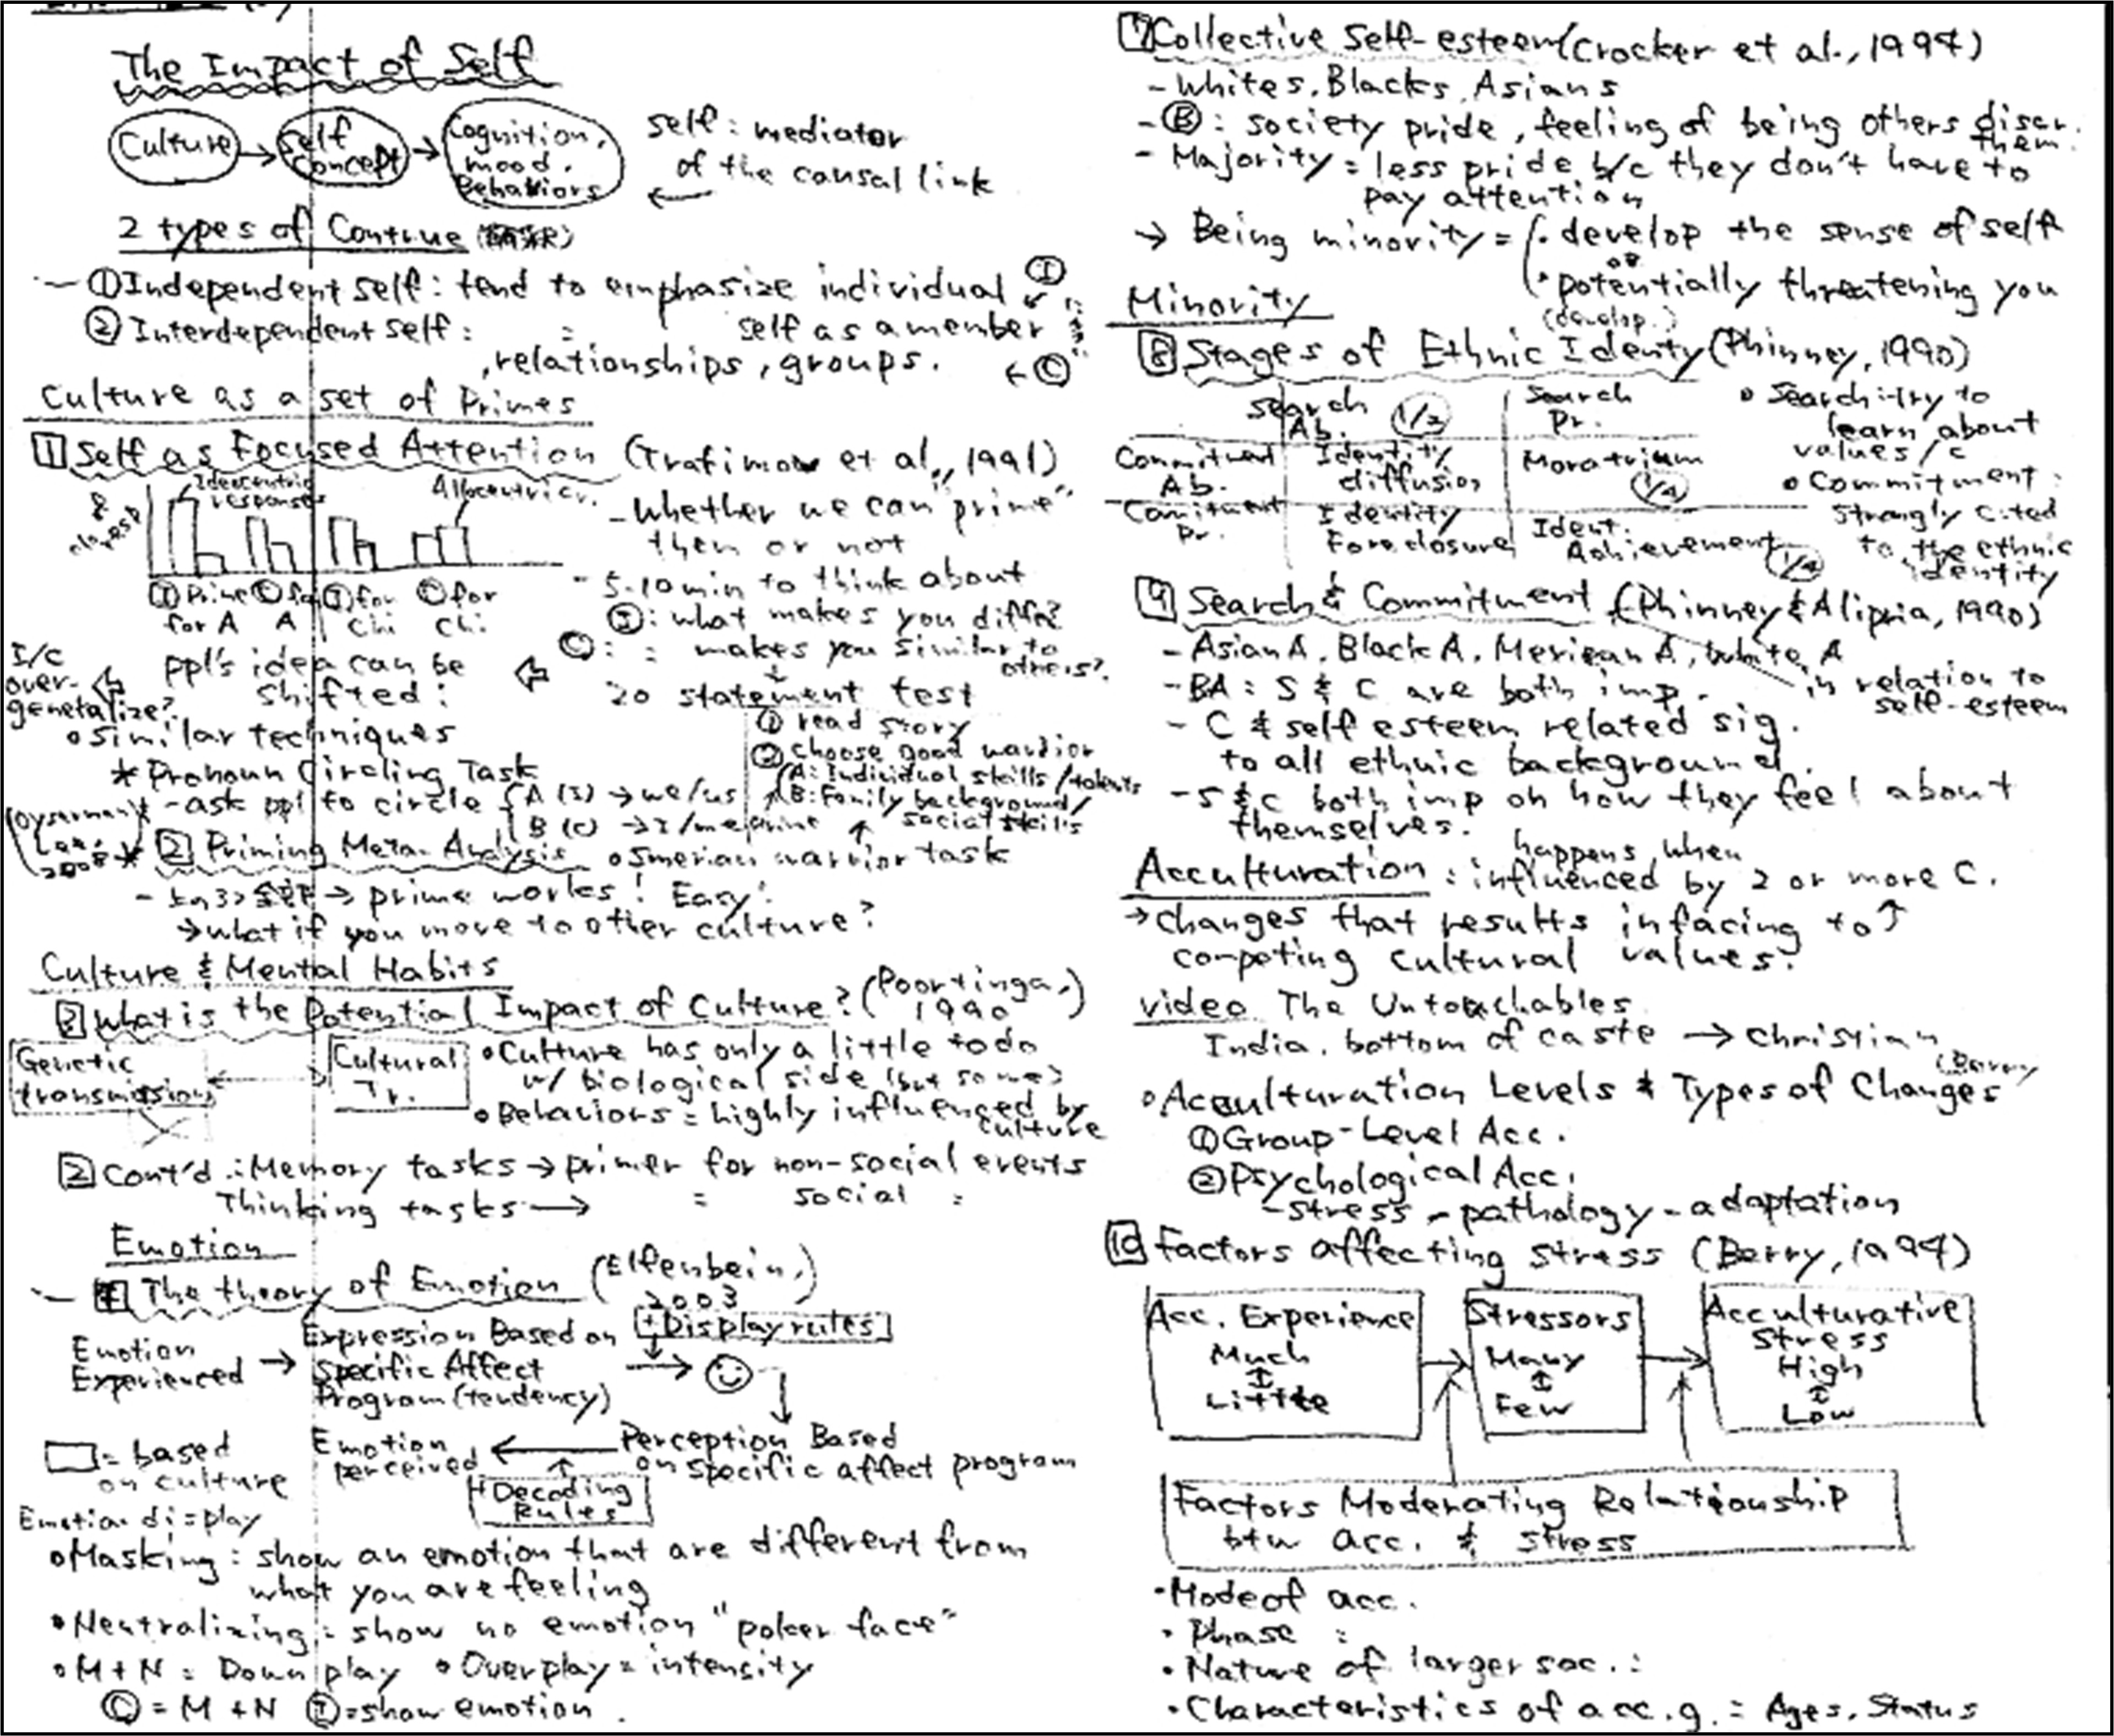 The Impact of Self
Culture → Self Concept → Cognition, mood, Behaviors
self: mediator
of the causal link
←
2 types of Continue
- ① Independent self: tend to emphasize individual Ⓘ
② Interdependent self: = self as a member
, relationships, groups. ← Ⓒ
Culture as a set of Primes
1 Self as Focused Attention (Trafimow et al., 1991)
Ideocentric responses
Allocentric r.
- whether we can "prime"
them or not
Ⓘ Prime for A
Ⓒ for A
Ⓘ for Chi
Ⓒ for Chi.
- 5-10 min to think about
: what makes you diffe?
Ⓒ: = makes you similar to others?
↓
20 statement test
I/c over-genetalize?
⇐ ppl's idea can be
shifted:
⇐
• similar techniques
* Pronoun Circling Task
- ask ppl to circle { A (I) → we/us
B (c) → I/me/mine
① read story
② choose good warrior
A: Individual skills/talents
B: Family background/
social skills
↑
• Smerian warrior task
Lee, 2008 *
2 Priming Meta-Analysis
→ prime works! Easy!
→ what if you move to other culture?
Culture & Mental Habits
3 What is the Potential Impact of Culture? (Poortinga, 1990)
Genetic transmission
Cultural Tr.
• Culture has only a little to do
w/ biological side (but some)
• Behaviors = highly influenced by
culture
2 Cont'd: Memory tasks → primer for non-social events
Thinking tasks → = social =
Emotion
- 4 The theory of Emotion (Elfenbein, 2003)
Emotion Experienced →
Expression Based on
Specific Affect
Program (tendency)
+ Display rules
→
↓
Perception Based
on specific affect program
←
+ Decoding Rules
Emotion perceived
= based
on culture
Emotion display
• Masking: show an emotion that are different from
what you are feeling
• Neutralizing: show no emotion "poker face"
• M + N = Down play • Overplay = intensity
Ⓒ = M + N Ⓘ = show emotion.
7 Collective Self-esteem (Crocker et al., 1994)
- Whites, Blacks, Asians
- Ⓑ: society pride, feeling of being others discr.
them.
- Majority = less pride b/c they don't have to
pay attention
→ Being minority = • develop the sense of self
or
• potentially threatening you
Minority
(develop.)
8 Stages of Ethnic Identy (Phinney, 1990)
Search Ab. 1/2
Search Pr.
Commitment Ab.
Identity diffusion
Moratrium 1/4
Comitment Pr.
Identity Foreclosure
Ident. Achievement 1/4
• Search: try to
learn about
values/c
• Commitment:
strongly c.ted
to the ethnic
identity
9 Search & Commitment (Phinney & Alipria, 1990)
- Asian A, Black A, Merican A, White A
in relation to
self-esteem
- BA: S & C are both imp.
- C & self esteem related sig.
to all ethnic background.
- S & C both imp on how they feel about
themselves.
Acculturation: happens when
influenced by 2 or more C.
→ changes that results in facing to ↑
competing cultural values.
video The Untouchables
India, bottom of caste → Christian
(Berry
• Acculturation Levels & Types of Changes
① Group-Level Acc.
② Psychological Acc.
- stress - pathology - adaptation
10 Factors affecting stress (Berry, 1994)
Acc. Experience
Much
↕
Little
→
Stressors
Many
↕
Few
→
Acculturative
Stress
High
↕
Low
Factors Moderating Relationship
btw acc. & stress
• Mode of acc.
• Phase =
• Nature of larger soc.:
• Characteristics of acc. g. = Ages, Status